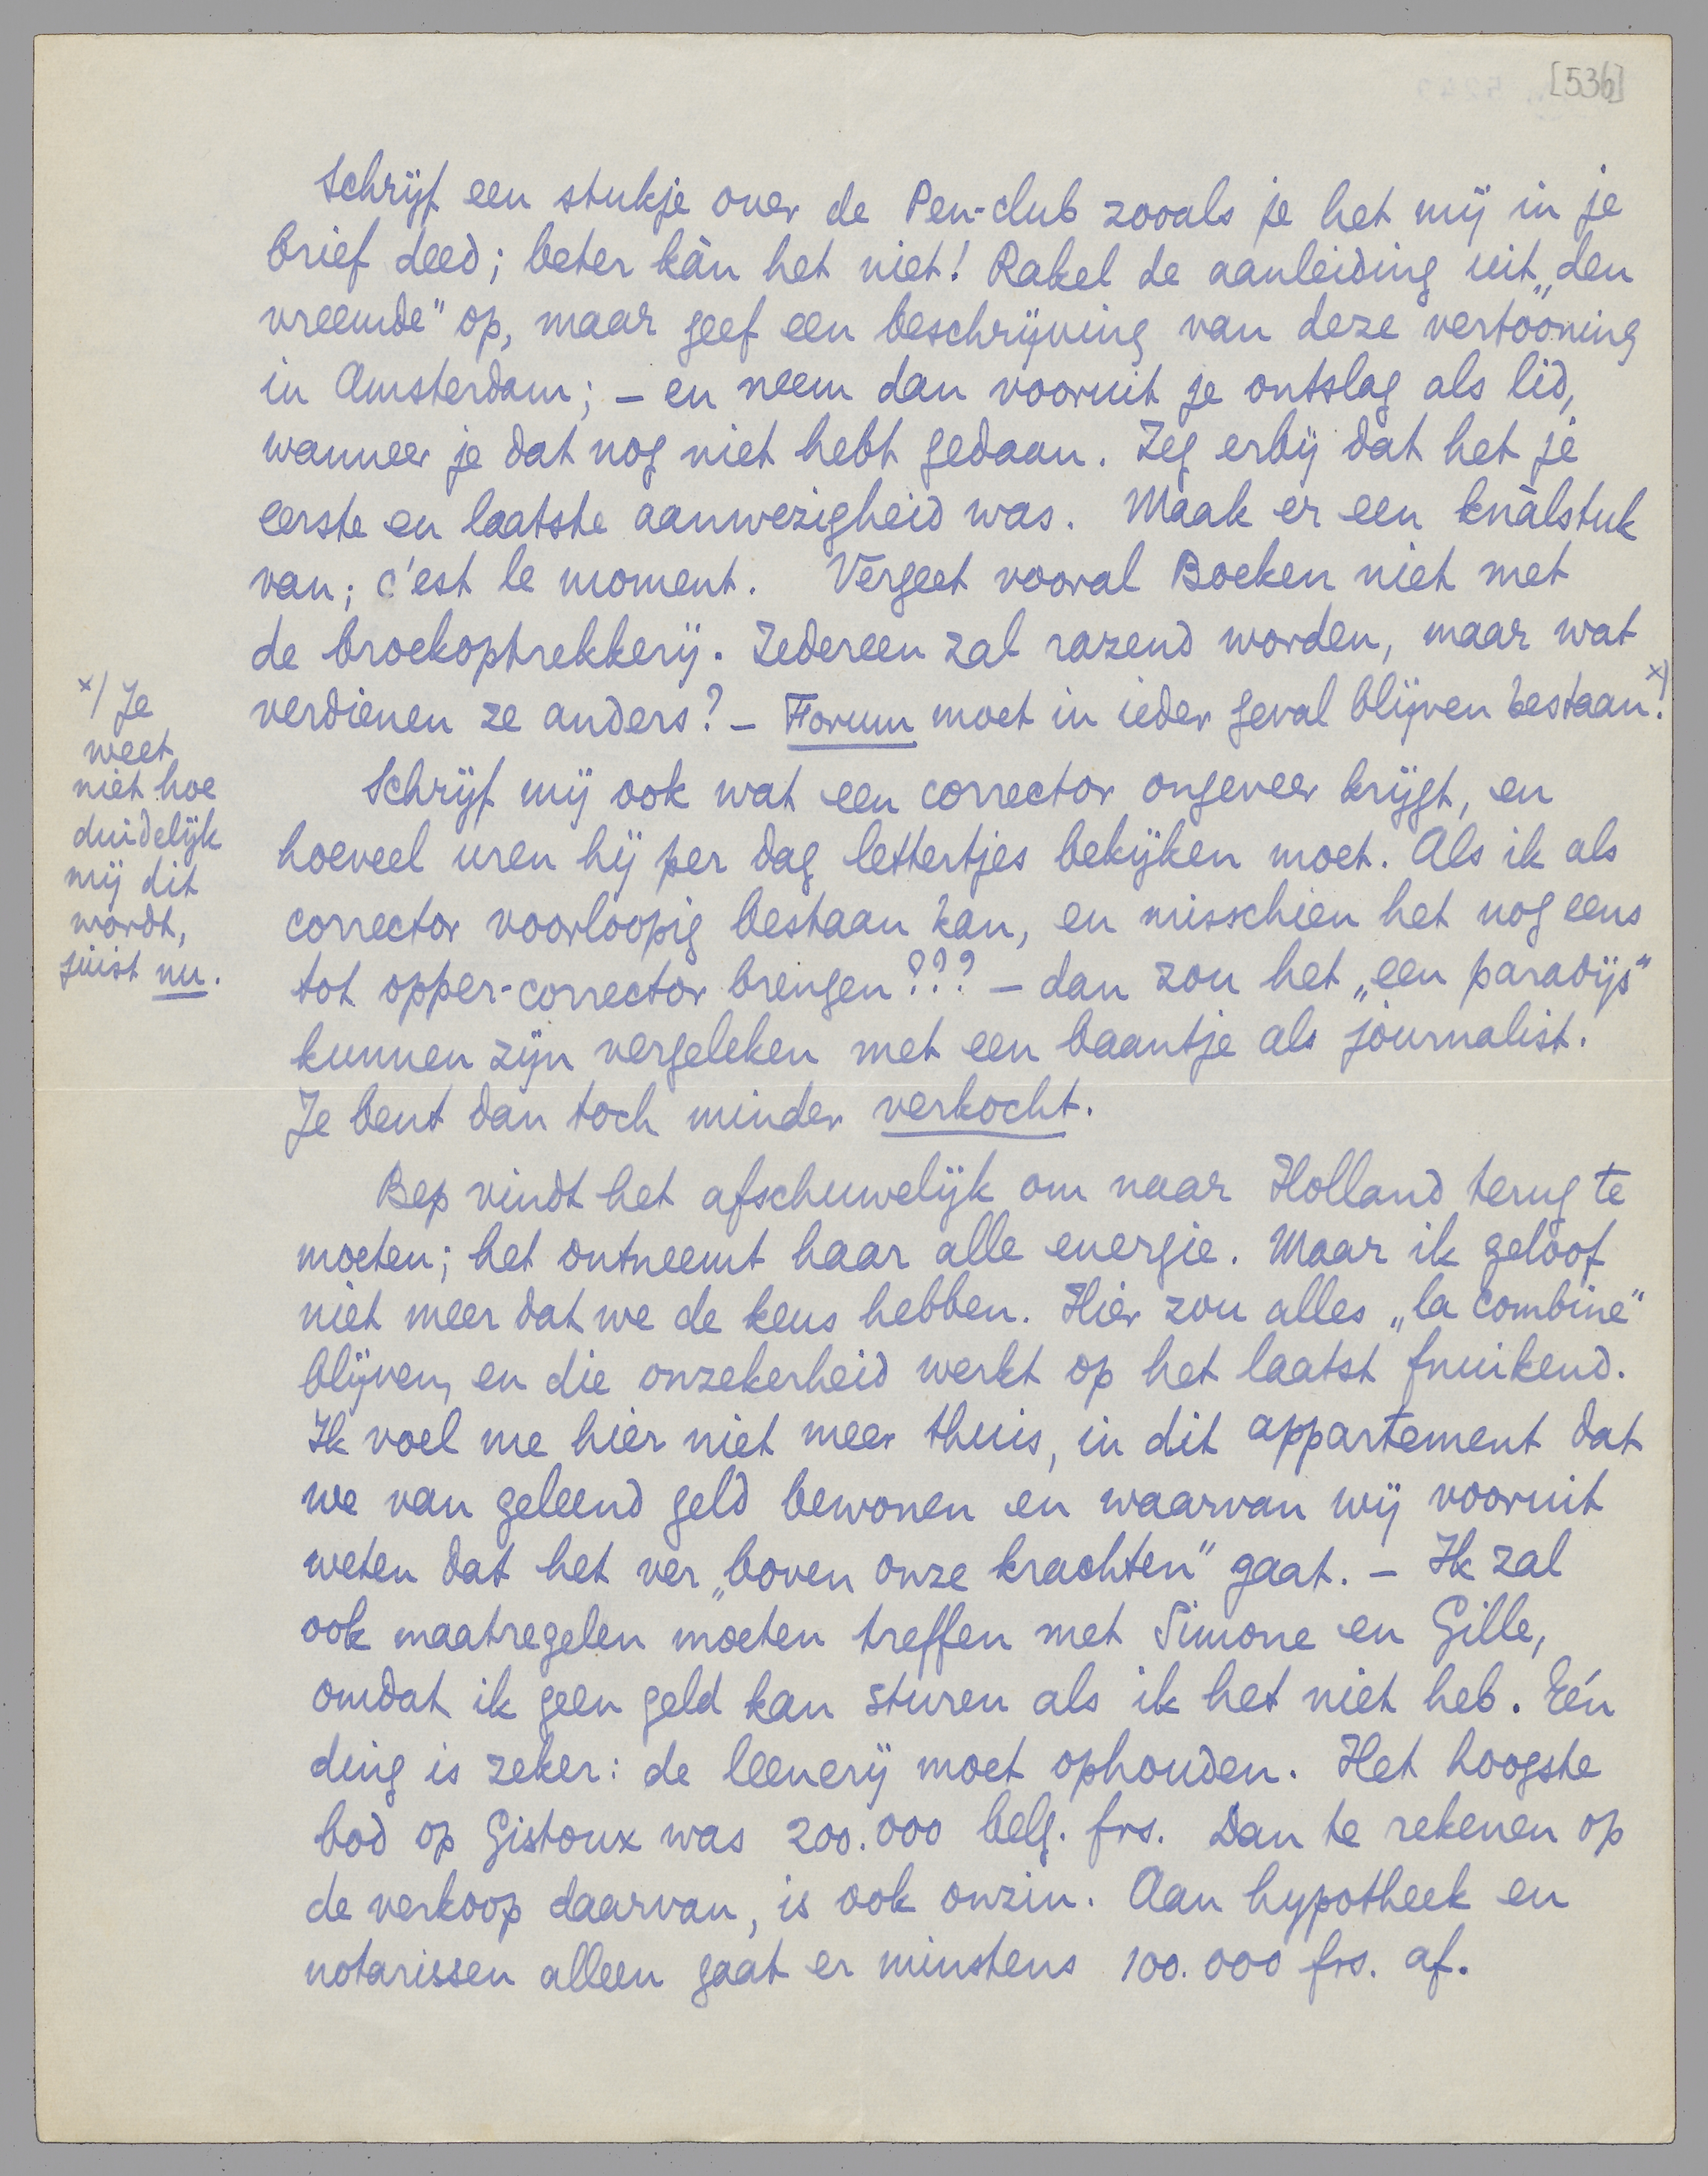 [536]
Schrijf een stukje over de Pen-club zooals je het mij in je
brief deed; beter kàn het niet! Rakel de aanleiding uit „den
vreemde" op, maar geef een beschrijving van deze vertooning
in Amsterdam; – en neem dan vooruit je ontslag als lid,
wanneer je dat nog niet hebt gedaan. Zeg erbij dat het je
eerste en laatste aanwezigheid was. Maak er een knàlstuk
van; c'est le moment. Vergeet vooral Boeken niet met
de broekoptrekkerij. Iedereen zal razend worden, maar wat
verdienen ze anders? – Forum moet in ieder geval blijven bestaan! x)
Schrijf mij ook wat een corrector ongeveer krijgt, en
hoeveel uren hij per dag lettertjes bekijken moet. Als ik als
corrector voorloopig bestaan kan, en misschien het nog eens
tot opper-corrector brengen??? – dan zou het „een paradijs"
kunnen zijn vergeleken met een baantje als journalist.
Je bent dan toch minder verkocht.
Bep vindt het afschuwelijk om naar Holland terug te
moeten; het ontneemt haar alle energie. Maar ik geloof
niet meer dat we de keus hebben. Hier zou alles „la combine"
blijven, en die onzekerheid werkt op het laatst fnuikend.
Ik voel me hier niet meer thuis, in dit appartement dat
we van geleend geld bewonen en waarvan wij vooruit
weten dat het ver „boven onze krachten" gaat. – Ik zal
ook maatregelen moeten treffen met Simone en Gille,
omdat ik geen geld kan sturen als ik het niet heb. Eén
ding is zeker: de leenerij moet ophouden. Het hoogste
bod op Gistoux was 200.000 belg. frs. Dan te rekenen op
de verkoop daarvan, is ook onzin. Aan hypotheek en
notarissen alleen gaat er minstens 100.000 frs. af.
x) Je
weet
niet hoe
duidelijk
mij dit
wordt,
juist nu.